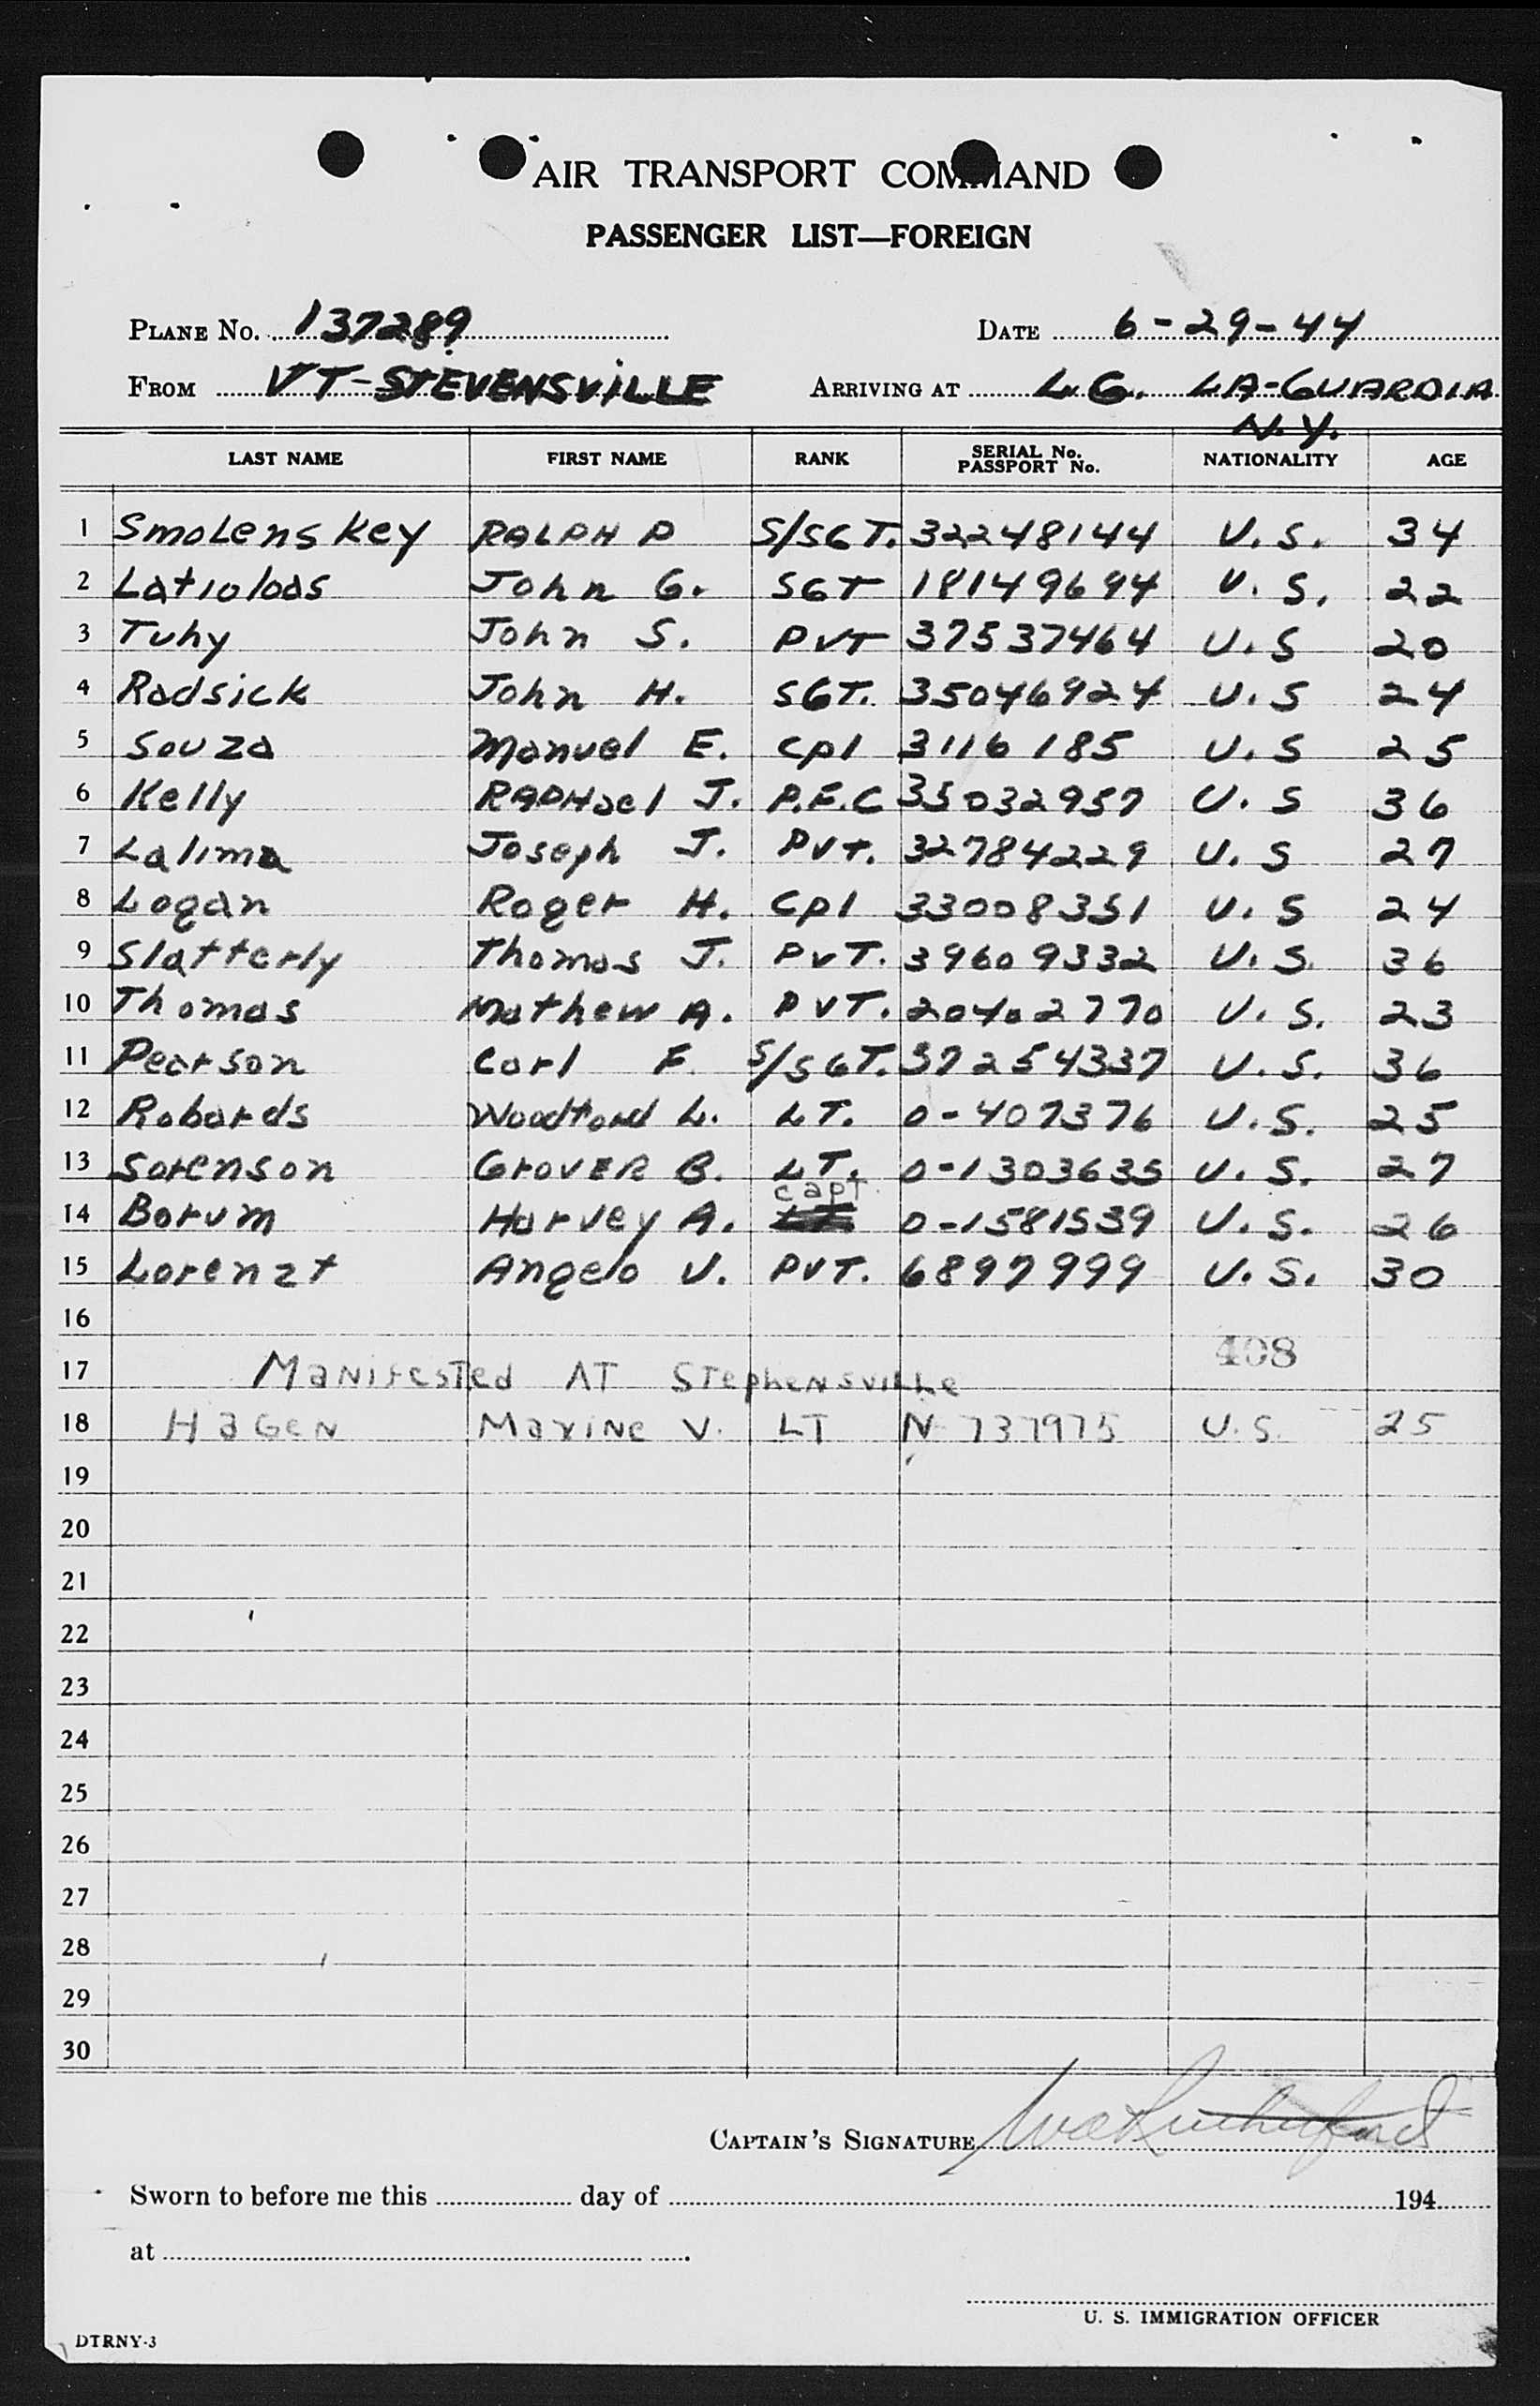 AIR TRANSPORT COMMAND
PASSENGER LIST—FOREIGN
PLANE No. 137289 DATE 6-29-44
FROM VT-STEVENSVILLE ARRIVING AT L.G. LA-GUARDIA
N.Y.
LAST NAME FIRST NAME RANK SERIAL No. PASSPORT No. NATIONALITY AGE
1 Smolenskey RALPH P S/SGT. 32248144 U.S. 34
2 Latiolas John G. SGT 18149694 U.S. 22
3 Tuhy John S. PVT 37537464 U.S 20
4 Radsick John H. SGT. 35046924 U.S 24
5 Souza Manuel E. Cpl 3116185 U.S 25
6 Kelly RAPHael J. P.F.C 35032957 U.S 36
7 Lalima Joseph J. Pvt. 32784229 U.S 27
8 Logan Roger H. Cpl 33008351 U.S 24
9 Slatterly Thomas J. PvT. 39609332 U.S. 36
10 Thomas Mathew A. PVT. 20402770 U.S. 23
11 Pearson Carl F. S/SGT. 37254337 U.S. 36
12 Robards Woodford L. LT. 0-407376 U.S. 25
13 Sorenson GrovER B. LT. 0-1303635 U.S. 27
14 Borum Harvey A. capt. 0-1581539 U.S. 26
15 Lorenzt Angelo V. PVT. 6897999 U.S. 30
16
408
17 Manifested AT Stephensville
18 HaGeN Maxine V. LT N 737975 U.S. 25
19
20
21
22
23
24
25
26
27
28
29
30
CAPTAIN'S SIGNATURE
Sworn to before me this day of 194
at
U. S. IMMIGRATION OFFICER
DTRNY-3